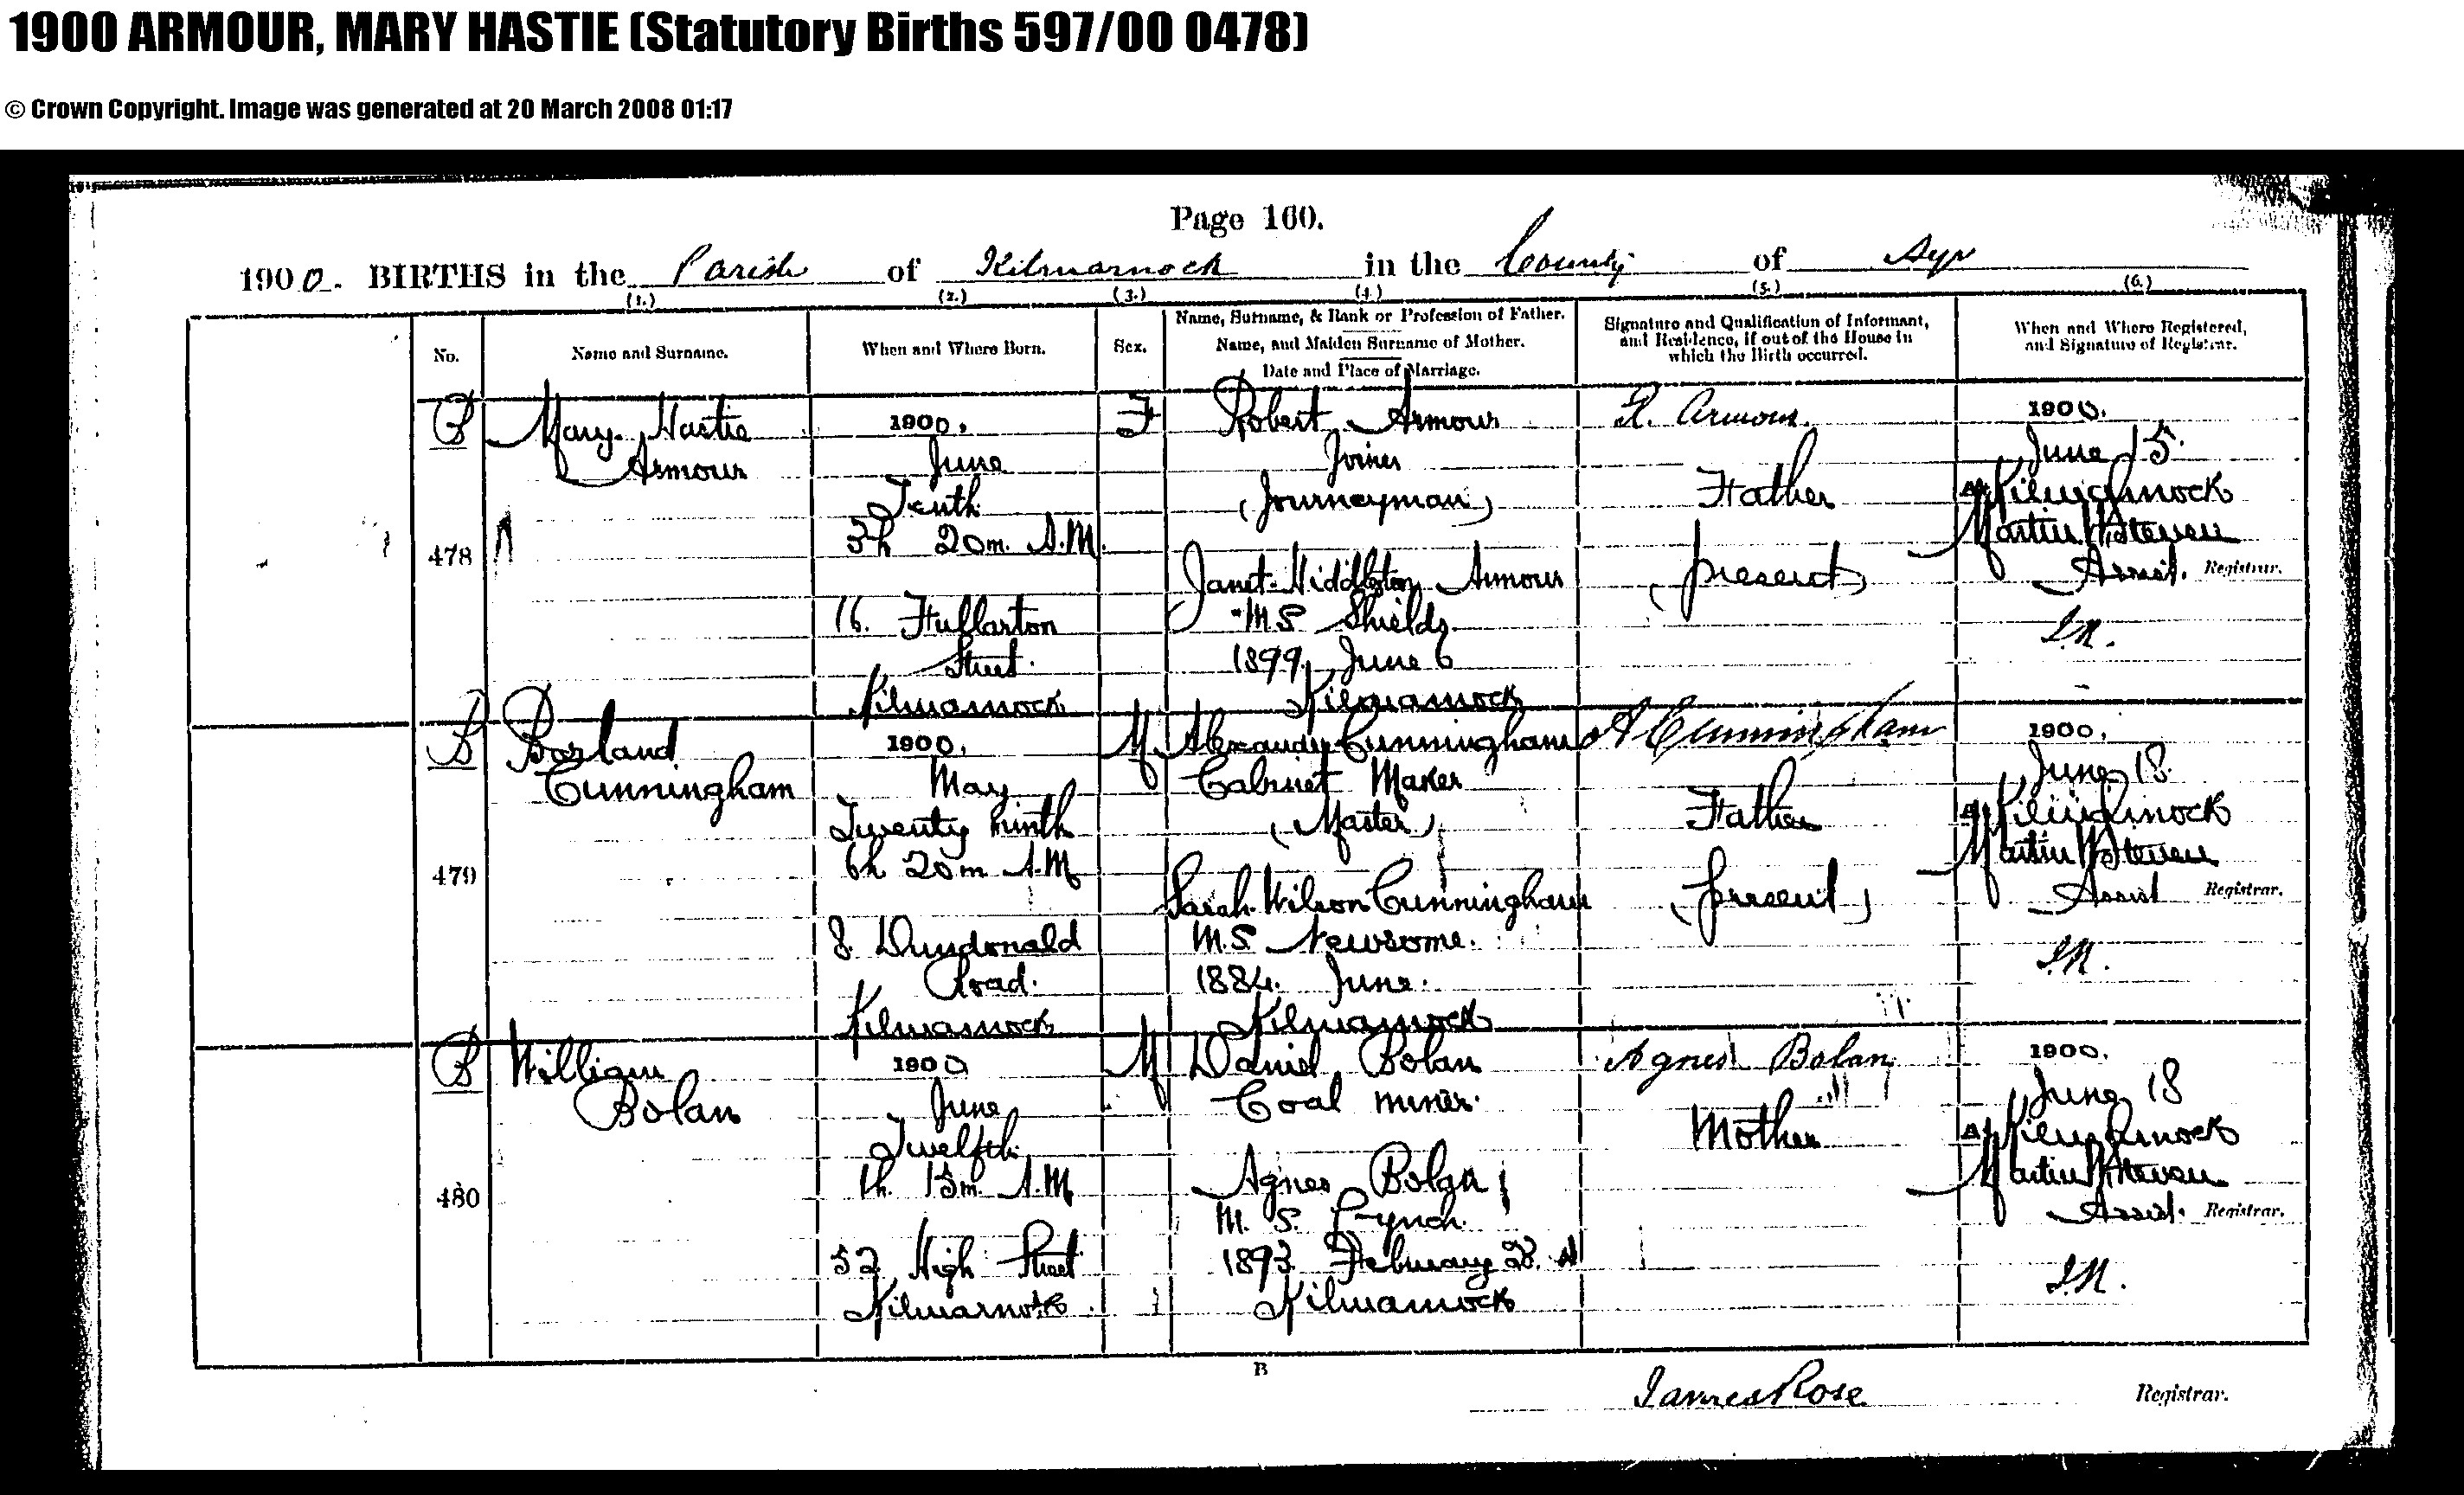 1900 ARMOUR, MARY HASTIE (Statutory Births 597/00 0478)
© Crown Copyright. Image was generated at 20 March 2008 01:17
Page 160.
1900. BIRTHS in the Parish of Kilmarnock in the County of Ayr
(1.) (2.) (3.) (4.) (5.) (6.)
No.
Name and Surname.
When and Where Born.
Sex.
Name, Surname, & Rank or Profession of Father.
Name, and Maiden Surname of Mother.
Date and Place of Marriage.
Signature and Qualification of Informant,
and Residence, if out of the House in
which the Birth occurred.
When and Where Registered,
and Signature of Registrar.
478
Mary Hastie
Armour
1900,
June
Tenth
3h 20m. A.M.
16. Fullarton
Street.
Kilmarnock
F
Robert Armour
Joiner
(Journeyman)
Janet Middleton Armour
M.S Shields
1899, June 6
Kilmarnock
R. Armour.
Father
(present)
1900.
June 15.
At Kilmarnock
Martin W Steven
Assist. Registrar.
J.R.
479
Borland
Cunningham
1900,
May
Twenty ninth
6h 20m A.M
8. Dundonald
Road.
Kilmarnock
M
Alexander Cunningham
Cabinet Maker
(Master)
Sarah Wilson Cunningham
M.S. Newsome.
1884. June.
Kilmarnock
A Cunningham
Father
(present)
1900,
June 18.
At Kilmarnock
Martin W Steven
Assist Registrar.
J.R.
480
William
Bolan
1900
June
Twelfth
1h. 15m. A.M
52 High Street
Kilmarnock
M
Daniel Bolan
Coal miner.
Agnes Bolan
M. S. Lynch.
1893 February 28.
Kilmarnock
Agnes Bolan
Mother
1900.
June 18
At Kilmarnock
Martin W Steven
Assist. Registrar.
J.R.
B
James Rose Registrar.